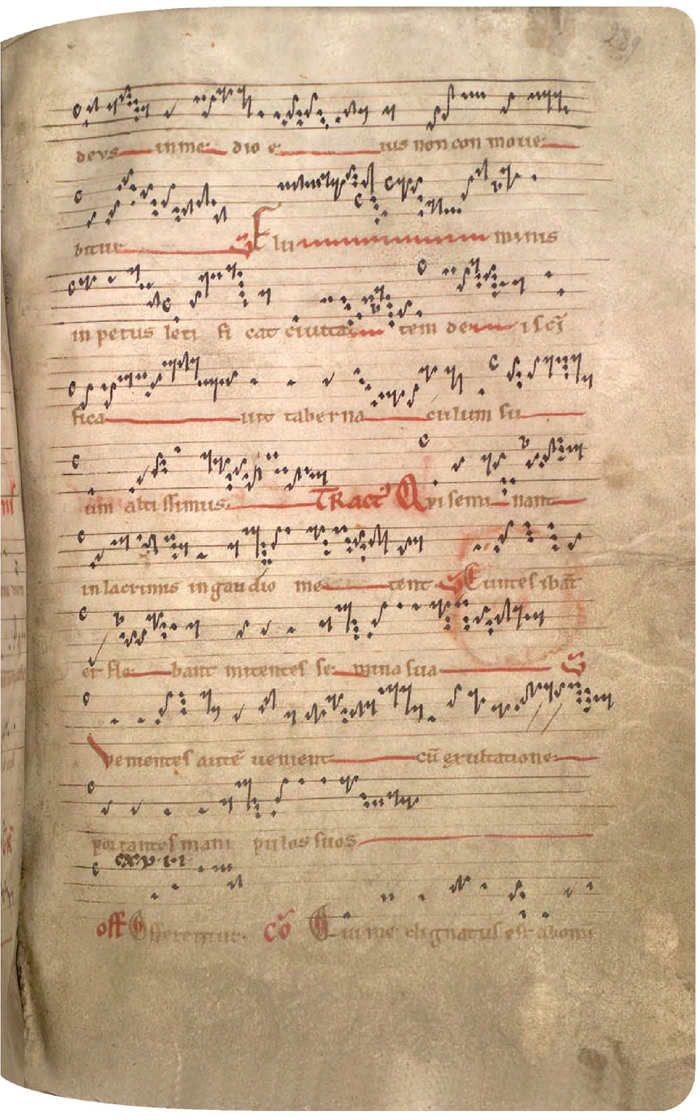 239
deus in me dio e ius non con moue
bitur Flu minis
in petus leti fi cat ciuita tem de i sci
fica uit taberna culum su
um alti ssimus Tract Qui semi nant
in lacrimis in gaudio me tent Euntes ibat
et fle bant mitentes se mina sua
Venientes aute uenient cu exultatione
portantes mani pulos suos
off Offerentur co Qui me dignatus est abomi